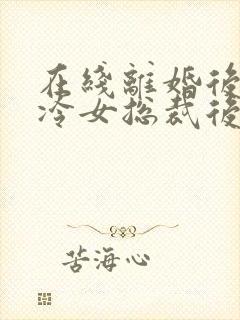 在线離婚後
冷女总裁後
苦海心